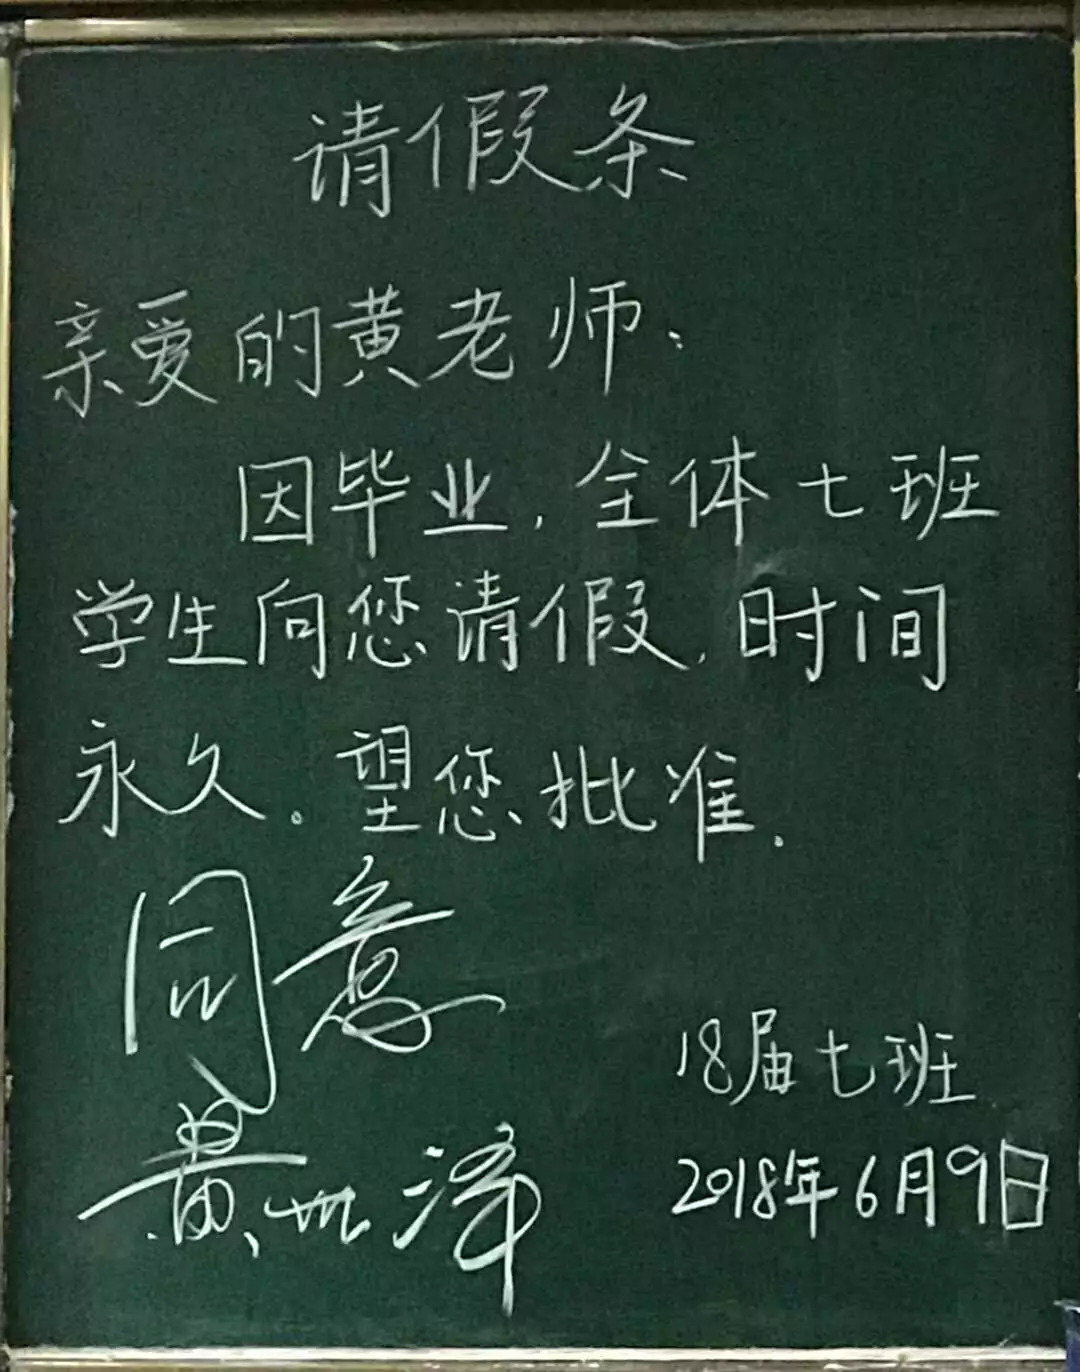 请假条
亲爱的黄老师：
因毕业，全体七班
学生向您请假，时间
永久。望您批准.
同意
黄世泽
18届七班
2018年6月9日